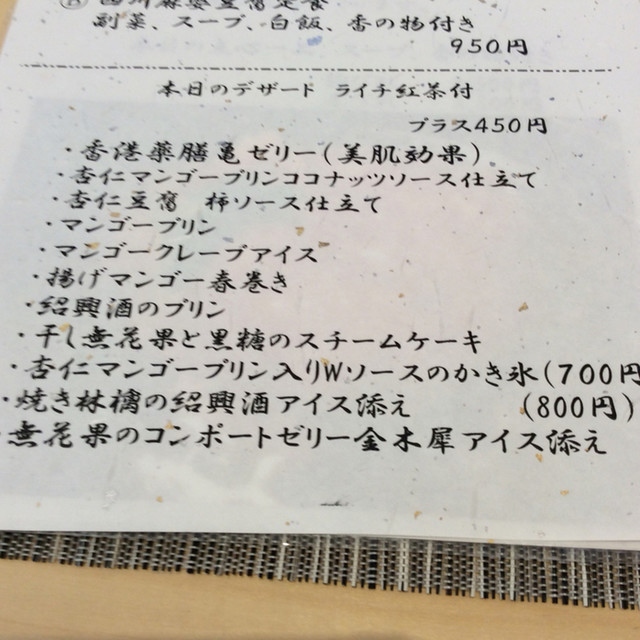 四川麻婆豆腐定食
副菜、スープ、白飯、香の物付き
950円
本日のデザート ライチ紅茶付
プラス450円
・香港薬膳亀ゼリー(美肌効果)
・杏仁マンゴープリンココナッツソース仕立て
・杏仁豆腐 柿ソース仕立て
・マンゴープリン
・マンゴークレープアイス
・揚げマンゴー春巻き
・紹興酒のプリン
・干し無花果と黒糖のスチームケーキ
・杏仁マンゴープリン入りWソースのかき氷(700円
・焼き林檎の紹興酒アイス添え (800円)
・無花果のコンポートゼリー金木犀アイス添え